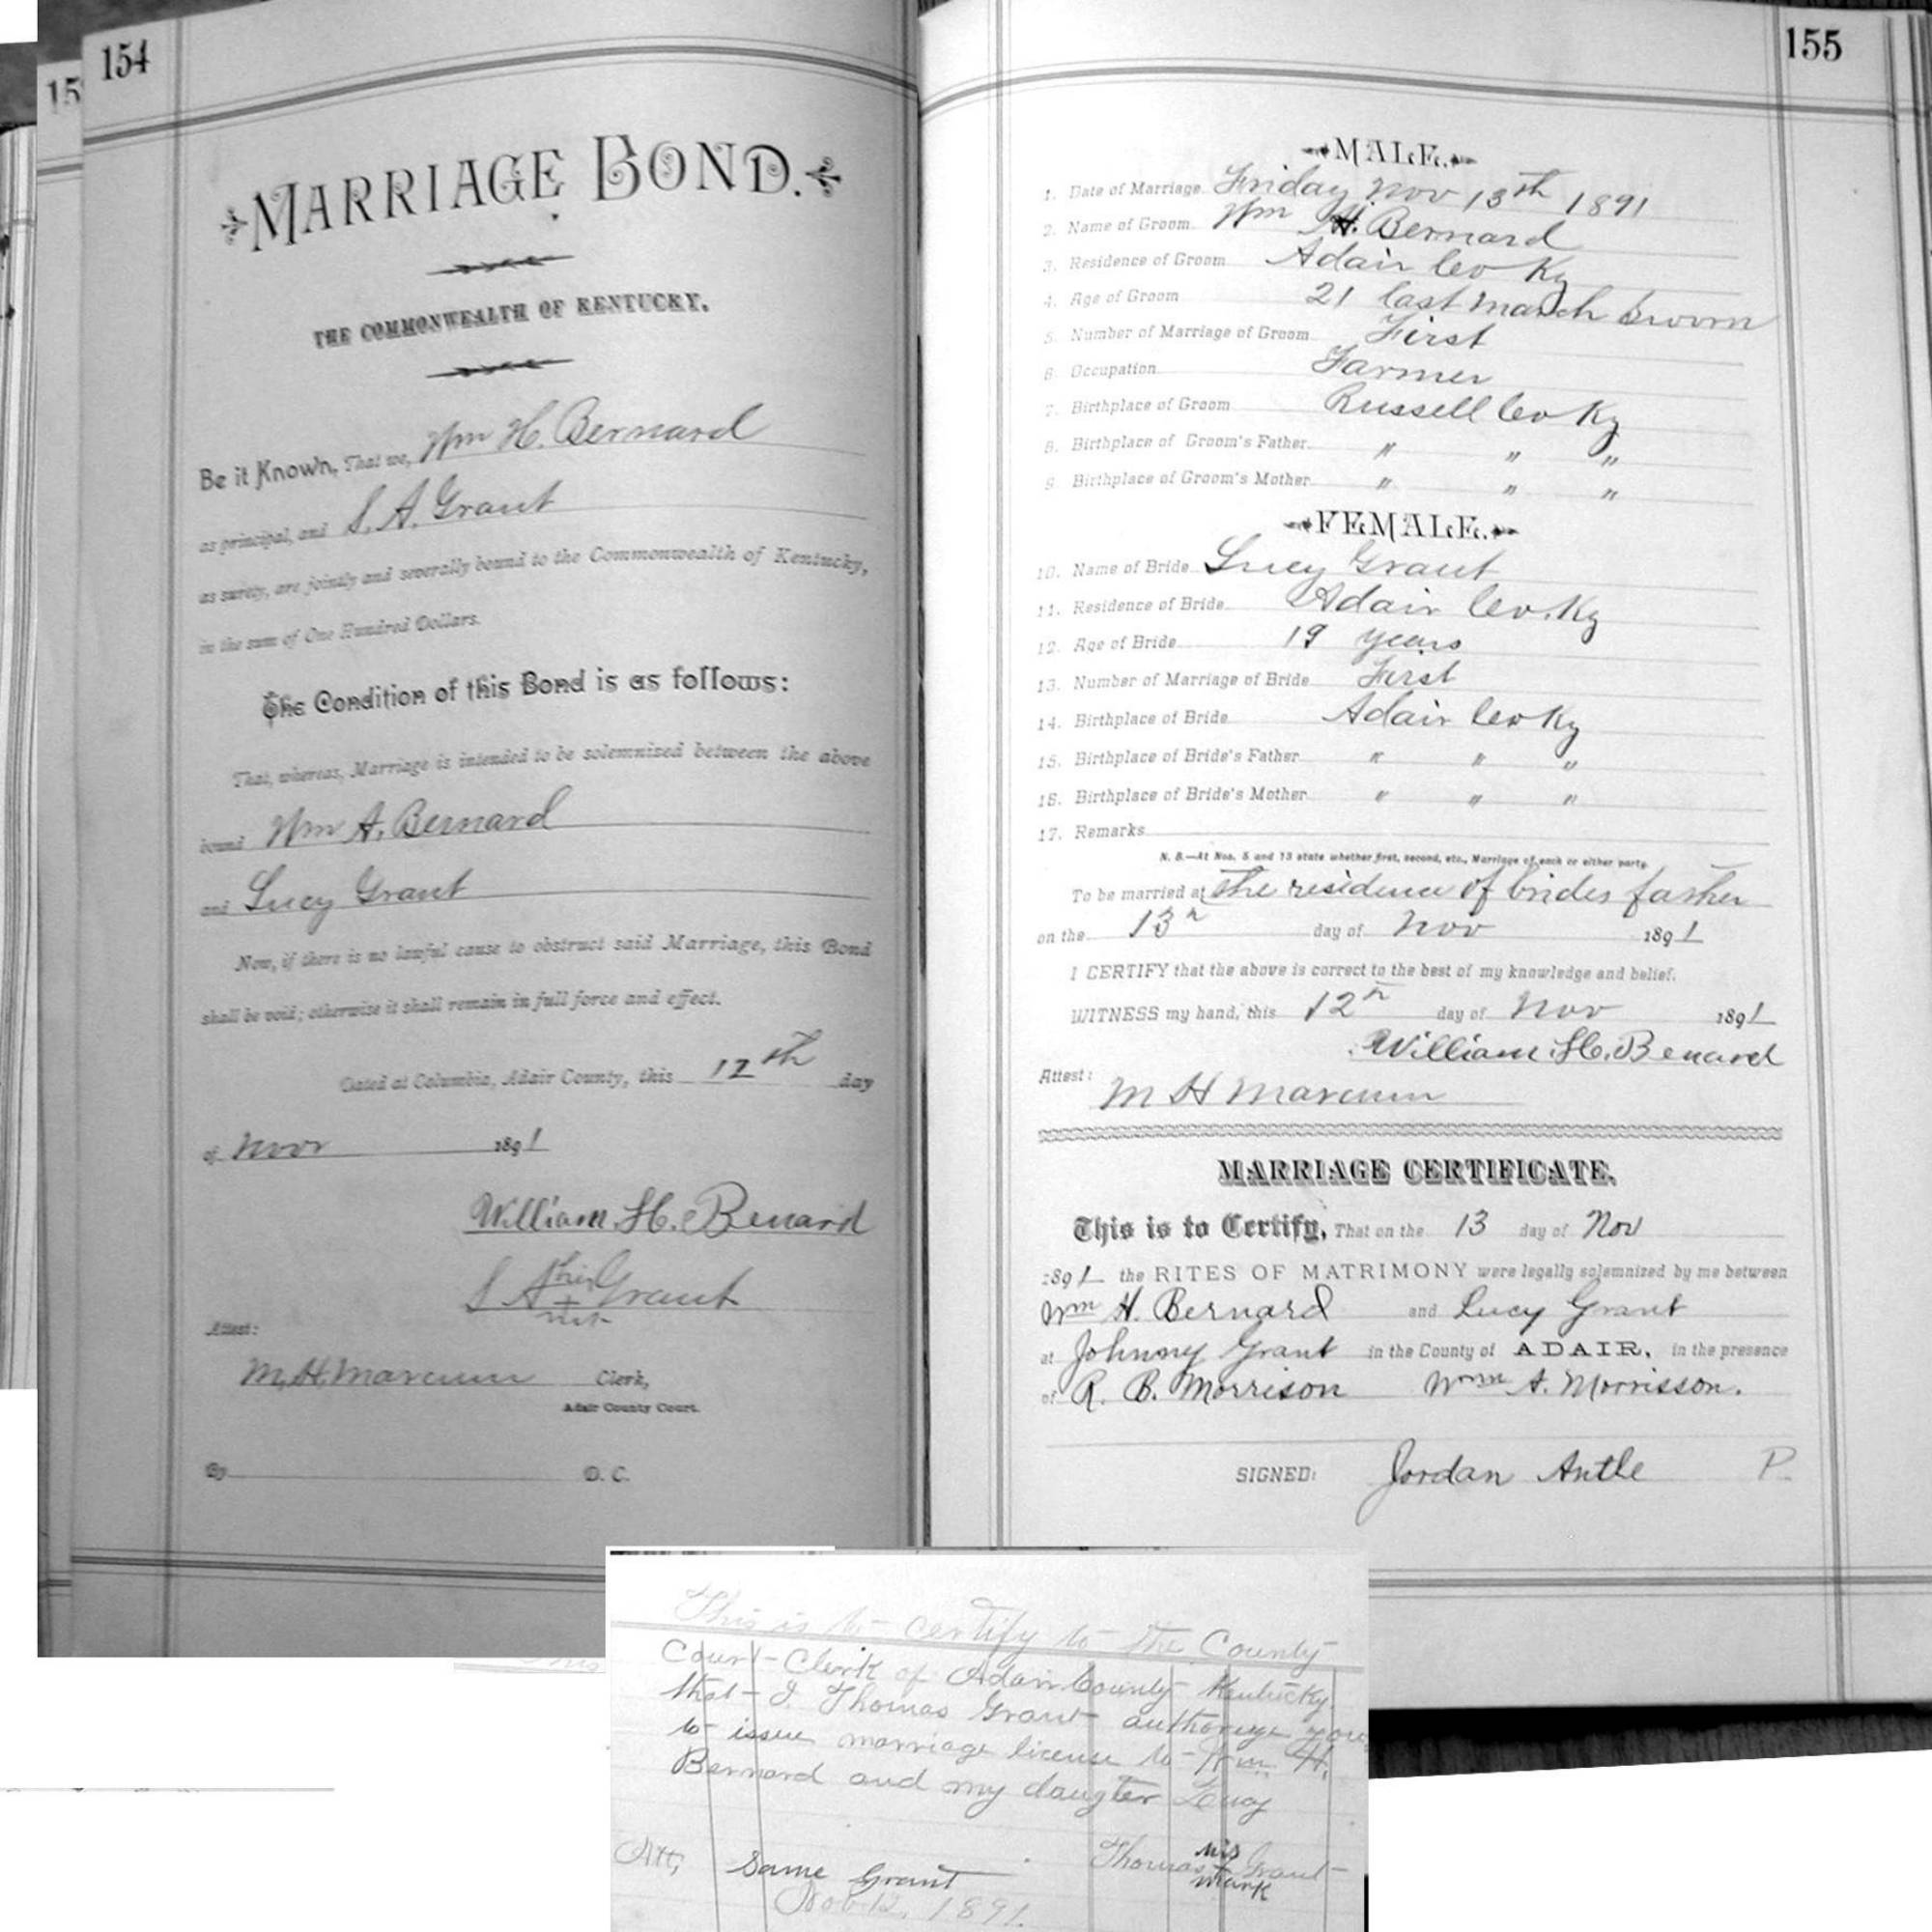 154
15
MARRIAGE BOND.
THE COMMONWEALTH OF KENTUCKY,
Be it Known, That we, Wm H. Bernard
as principal, and S. A. Grant
as surety, are jointly and severally bound to the Commonwealth of Kentucky,
in the sum of One Hundred Dollars.
The Condition of this Bond is as follows:
That, whereas, Marriage is intended to be solemnized between the above
bound Wm A. Bernard
and Lucy Grant
Now, if there is no lawful cause to obstruct said Marriage, this Bond
shall be void; otherwise it shall remain in full force and effect.
Dated at Columbia, Adair County, this 12th day
of Nov 1891
William. H. Benard
his
S A + Grant
Attest:
M, H, Marcum Clerk,
Adair County Court.
By D. C.
155
MALE.
1. Date of Marriage Friday Nov 13th 1891
2. Name of Groom Wm H. Bernard
3. Residence of Groom Adair Co Ky
4. Age of Groom 21 last March Sworn
5. Number of Marriage of Groom First
6. Occupation Farmer
7. Birthplace of Groom Russell Co Ky
8. Birthplace of Groom's Father " " "
9. Birthplace of Groom's Mother " " "
FEMALE.
10. Name of Bride Lucy Grant
11. Residence of Bride Adair Co. Ky
12. Age of Bride 19 years
13. Number of Marriage of Bride First
14. Birthplace of Bride Adair Co Ky
15. Birthplace of Bride's Father " " "
16. Birthplace of Bride's Mother " " "
17. Remarks
N. B.—At Nos. 5 and 13 state whether first, second, etc., Marriage of each or either party.
To be married at The residence of brides father
on the 13th day of Nov 1891
I CERTIFY that the above is correct to the best of my knowledge and belief.
WITNESS my hand, this 12th day of Nov 1891
William. H. Benard
Attest: M H Marcum
MARRIAGE CERTIFICATE.
This is to Certify, That on the 13 day of Nov
1891 the RITES OF MATRIMONY were legally solemnized by me between
Wm H. Bernard and Lucy Grant
at Johnny Grant in the County of ADAIR, in the presence
of R. B. Morrison Wm A. Morrisson.
SIGNED: Jordan Antle P.
This is to certify to the County
Court Clerk of Adair County Kentucky.
that I Thomas Grant authorize you
to issue marriage license to Wm H.
Bernard and my daugter Lucy
his
Att, Same Grant Thomas + Grant
mark
Nov 12, 1891.